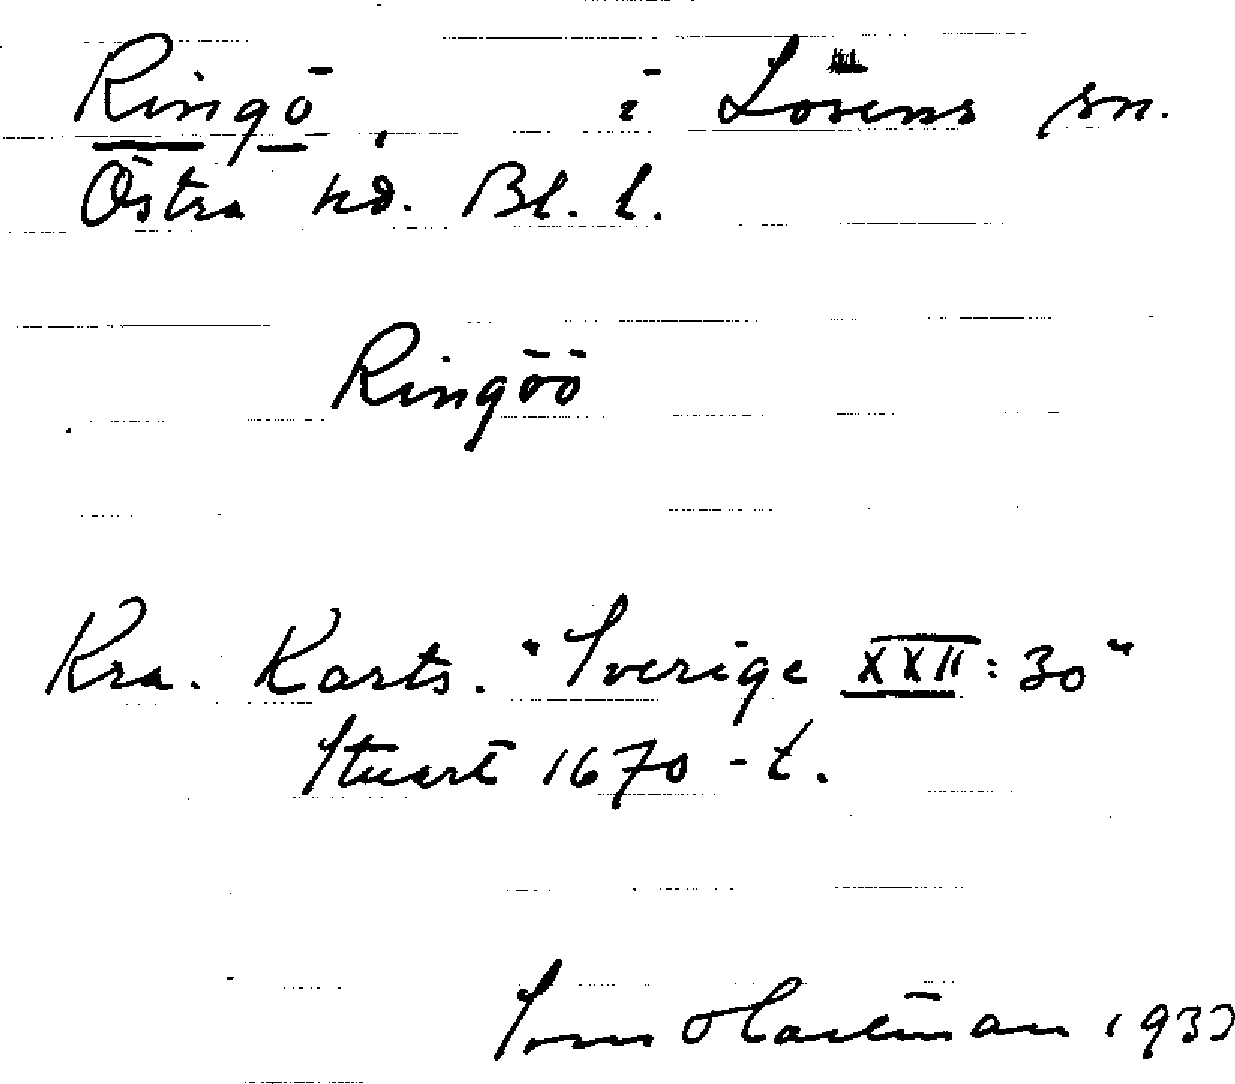 Ringö, i Lösens sn.
Östra hd. Bl. l.
Ringöö
Kra. Karts. "Sverige XXII:30"
Stuart 1670-t.
Sven 193